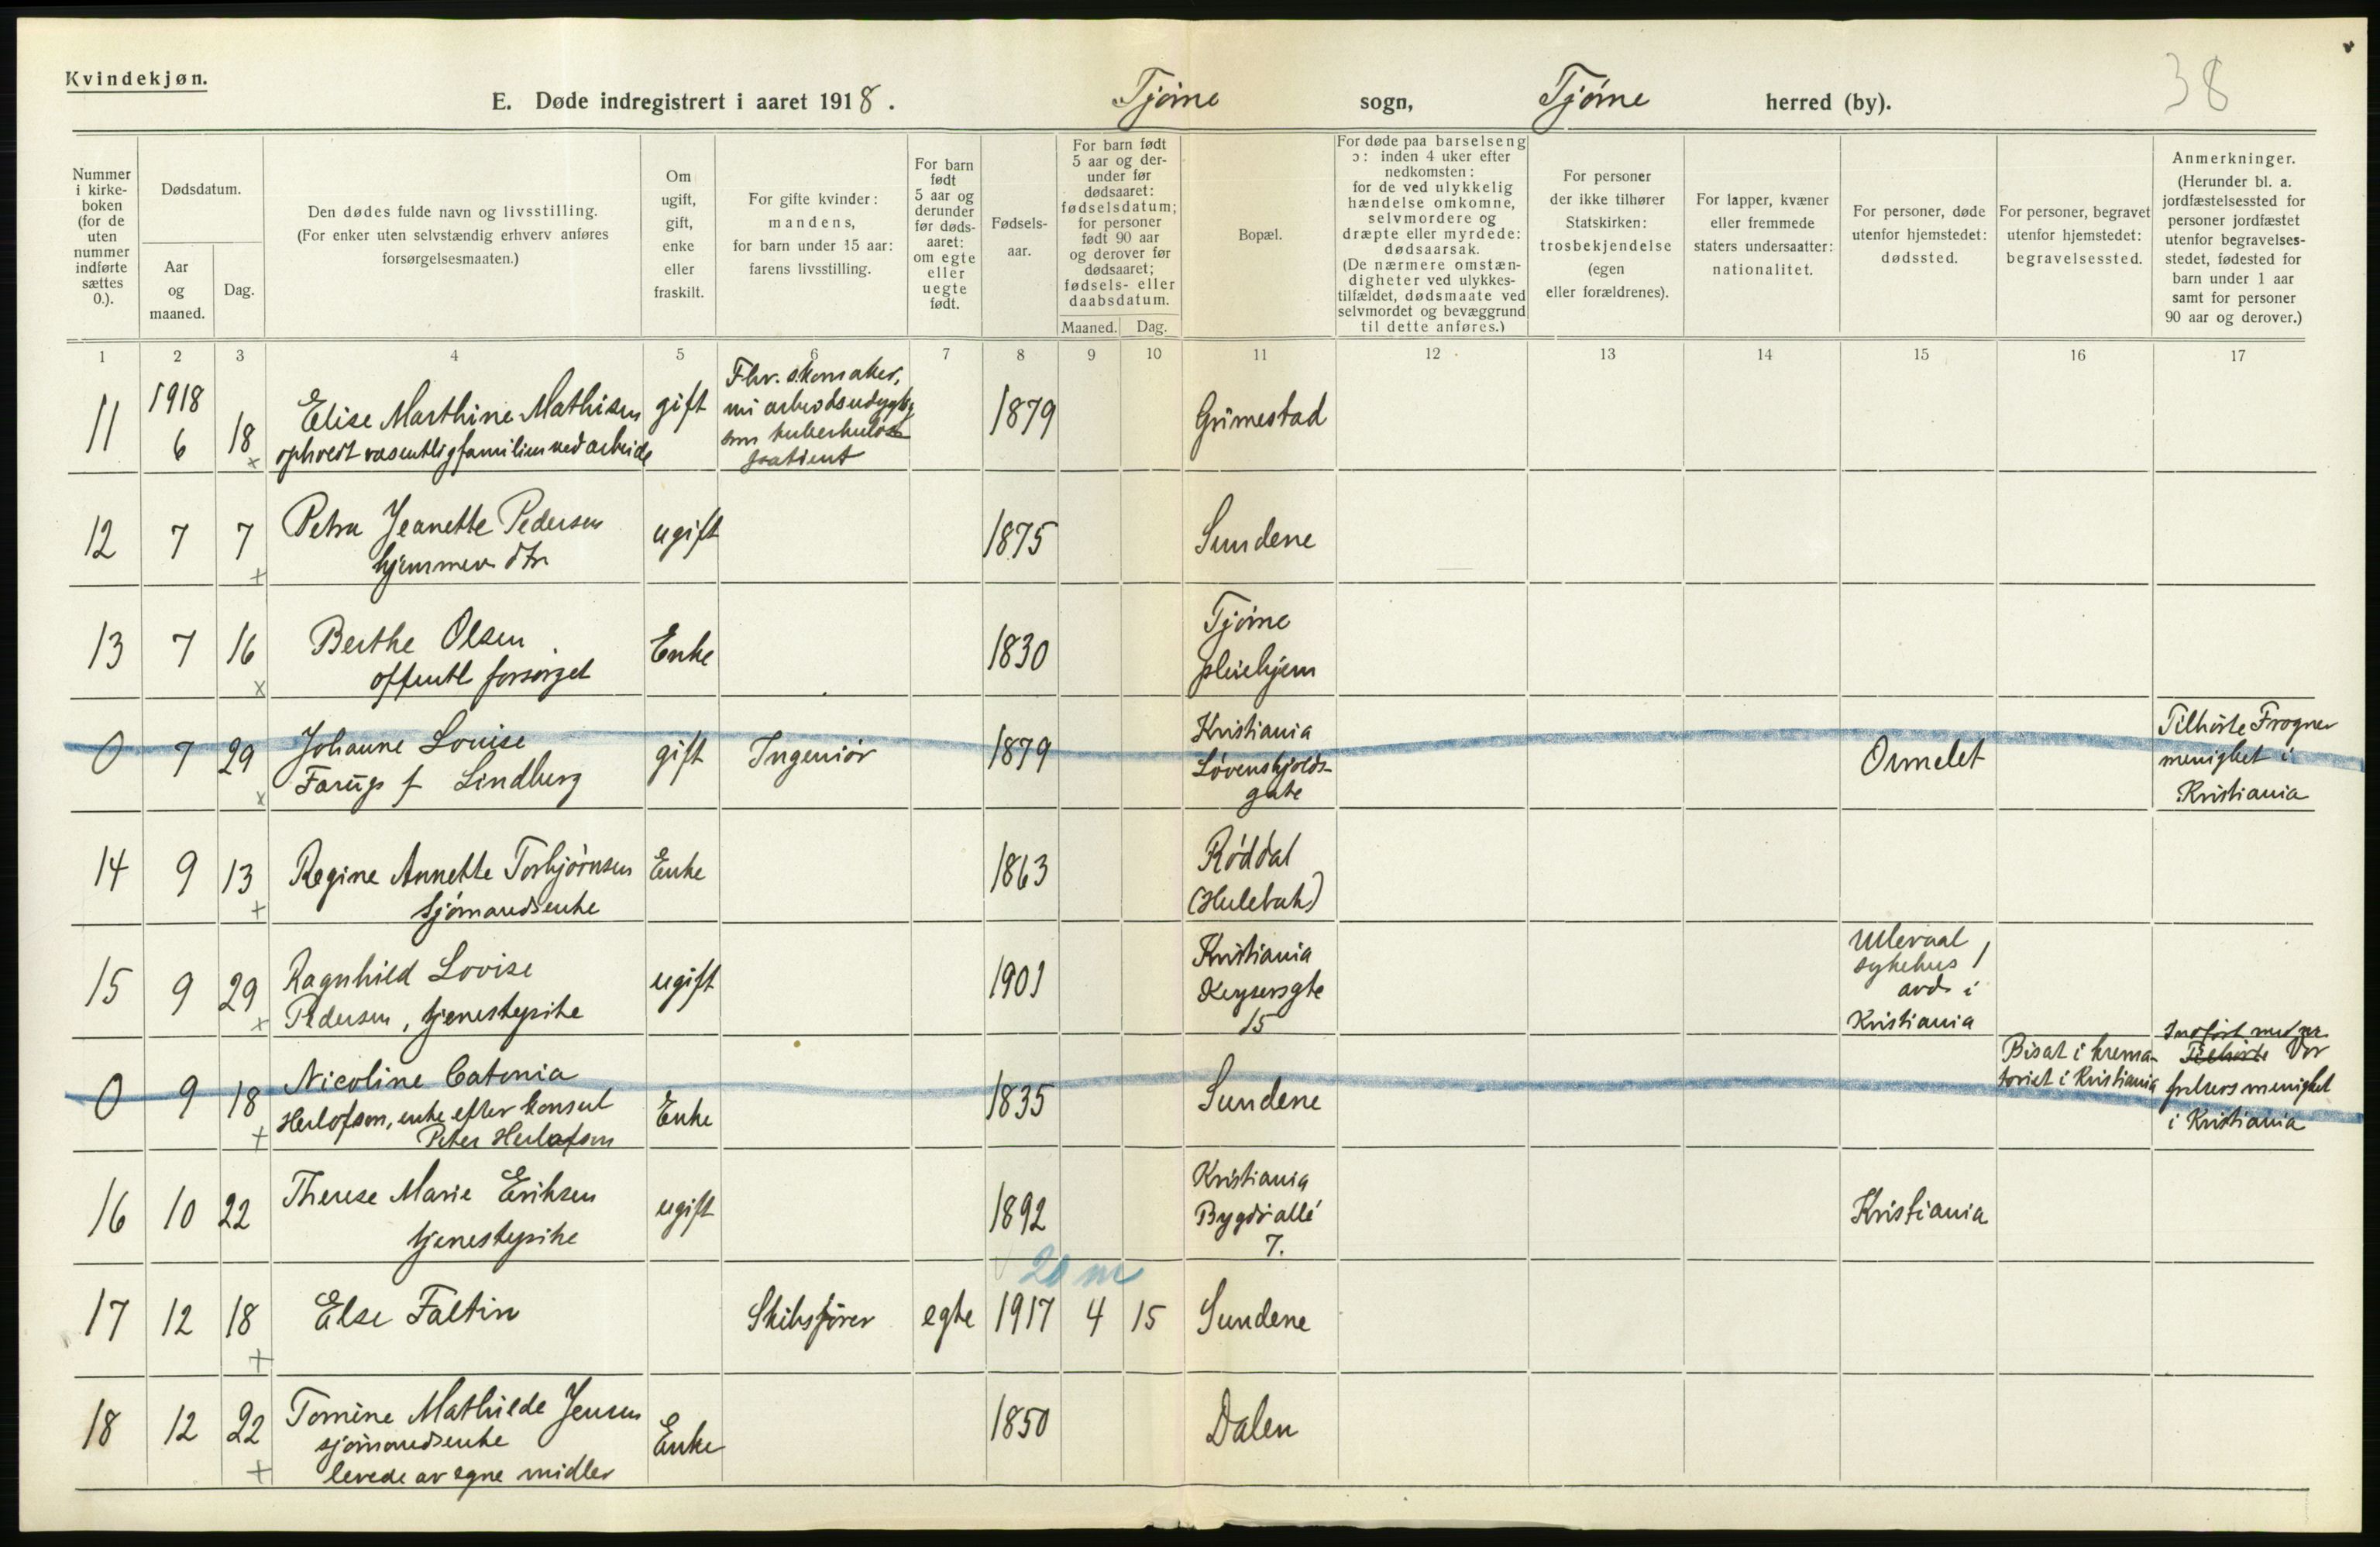 Kvindekjøn.
38
E. Døde indregistrert i aaret 1918. Tjøme sogn, Tjøme herred (by).
Nummer i kirke- boken (for de uten nummer indførte sættes 0.).
Dødsdatum.
Aar og maaned.
Dag.
Den dødes fulde navn og livsstilling.
(For enker uten selvstændig erhverv anføres
forsørgelsesmaaten.)
Om ugift, gift, enke eller fraskilt.
For gifte kvinder:
mandens,
for barn under 15 aar:
farens livsstilling.
For barn født 5 aar og derunder før døds- aaret: om egte eller uegte født.
Fødsels- aar.
For barn født 5 aar og der- under før dødsaaret: fødselsdatum; for personer født 90 aar og derover før dødsaaret; fødsels- eller daabsdatum.
Maaned. Dag.
Bopæl.
For døde paa barselseng
ɔ: inden 4 uker efter
nedkomsten:
for de ved ulykkelig
hændelse omkomne,
selvmordere og
dræpte eller myrdede:
dødsaarsak.
(De nærmere omstæn-
digheter ved ulykkes-
tilfældet, dødsmaate ved
selvmordet og bevæggrund
til dette anføres.)
For personer
der ikke tilhører
Statskirken:
trosbekjendelse
(egen
eller forældrenes).
For lapper, kvæner
eller fremmede
staters undersaatter:
nationalitet.
For personer, døde
utenfor hjemstedet:
dødssted.
For personer, begravet
utenfor hjemstedet:
begravelsessted.
Anmerkninger.
(Herunder bl. a.
jordfæstelsessted for
personer jordfæstet
utenfor begravelses-
stedet, fødested for
barn under 1 aar
samt for personer
90 aar og derover.)
1 2 3 4 5 6 7 8 9 10 11 12 13 14 15 16 17
11 1918 6 18 Elise Marthine Mathisen gift Fhv. skomaker, 1879 Grimestad
ophodt væsentlig familien ved arbeide
som tuberkuløs
patient
12 7 7 Petra Jeanette Pedersen ugift 1875 Sundene
hjemmev. dtr
13 7 16 Berthe Olsen Enke 1830 Tjøme
offentl forsørget pleiehjem
0 7 29 Johanne Louise gift Ingeniør 1879 Kristiania Ormelet Tilhørte Frogner
Farup f Lindberg Løvenskjolds- menighet i
gate Kristiania
14 9 13 Regine Annette Torbjørnsen Enke 1863 Røddal
sjømandsenke (Hulebak)
15 9 29 Ragnhild Lovise ugift 1901 Kristiania Ullevaal
Pedersen, tjenestepike Keysersgte sykehus 1
15 avd. i
Kristiania
0 9 18 Nicoline Catonia Enke 1835 Sundene Bisat i krema- Tilhørte Vor
Herlofson, enke efter konsul toriet i Kristiania frelsers menighet
Peter Herlofson i Kristiania
16 10 22 Therese Marie Eriksen ugift 1892 Kristiania Kristiania
tjenestepike Bygdø allé
7.
20 m
17 12 18 Else Faltin Skibsfører egte 1917 4 15 Sundene
18 12 22 Tomine Mathilde Jensen Enke 1850 Dalen
sjømandsenke
levede av egne midler